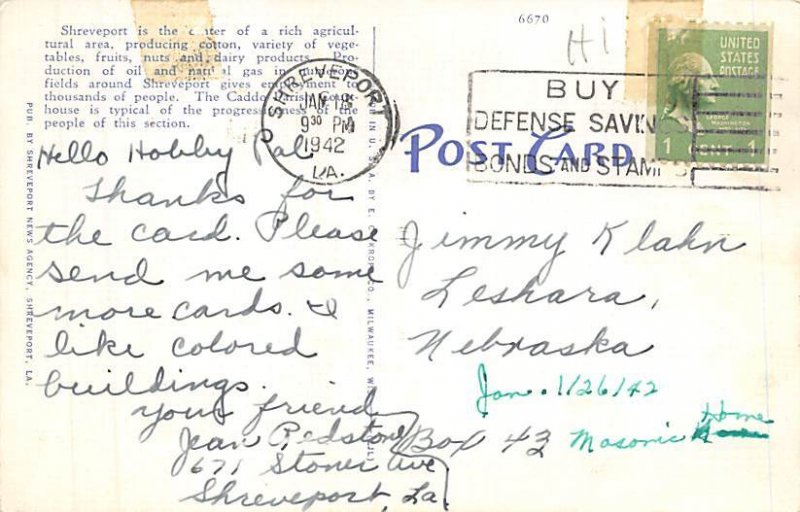 6670
Hi
Shreveport is the center of a rich agricul-
tural area, producing cotton, variety of vege-
tables, fruits, nuts and dairy products. Pro-
duction of oil and natural gas in
fields around Shreveport gives employment to
thousands of people. The Caddo Parish Court-
house is typical of the progressiveness of the
people of this section.
SHREVEPORT
JAN 18
9 30 PM
1942
LA.
BUY
DEFENSE SAVINGS
BONDS AND STAMPS
UNITED
STATES
POSTAGE
GEORGE
WASHINGTON
1 CENT 1
POST CARD
PUB. BY SHREVEPORT NEWS AGENCY, SHREVEPORT, LA.
IN U. S. A. BY E. C. KROPP CO., MILWAUKEE, WIS.
Hello Hobby Pal,
Thanks for
the card. Please
send me some
more cards. I
like colored
buildings.
Your friend
Jean Redstone
671 Stoner Ave
Shreveport, La.
Jimmy Klahn
Leshara,
Nebraska
Jan. 1/26/42
Box 43 Masonic Home